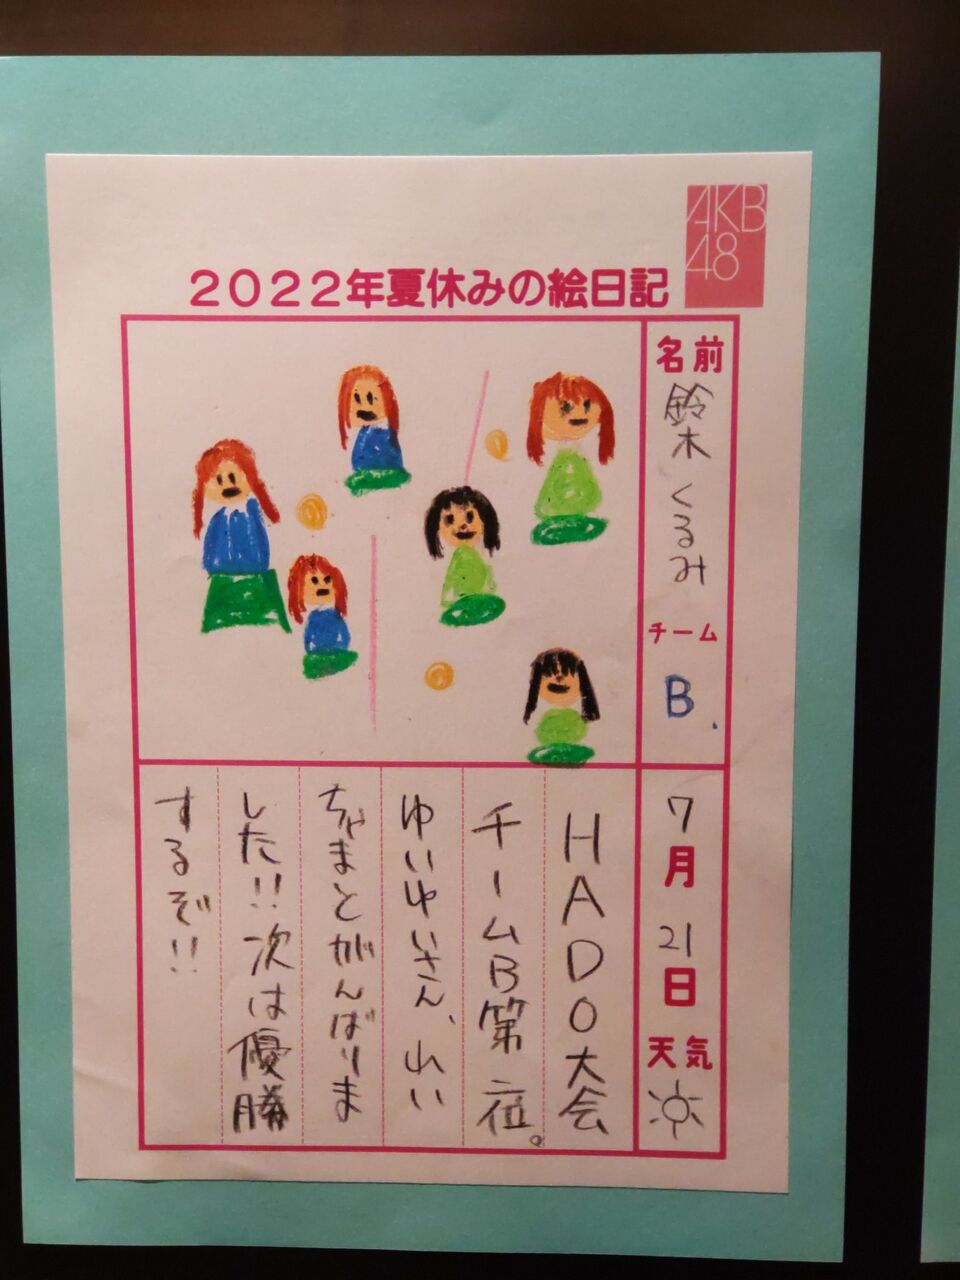 AKB
48
2022年夏休みの絵日記
名前
鈴木くるみ
チーム
B
7月21日
天気
HADO大会
チームB第二位。
ゆいゆいさん、れい
ちゃまとがんばりま
した!!次は優勝
するぞ!!